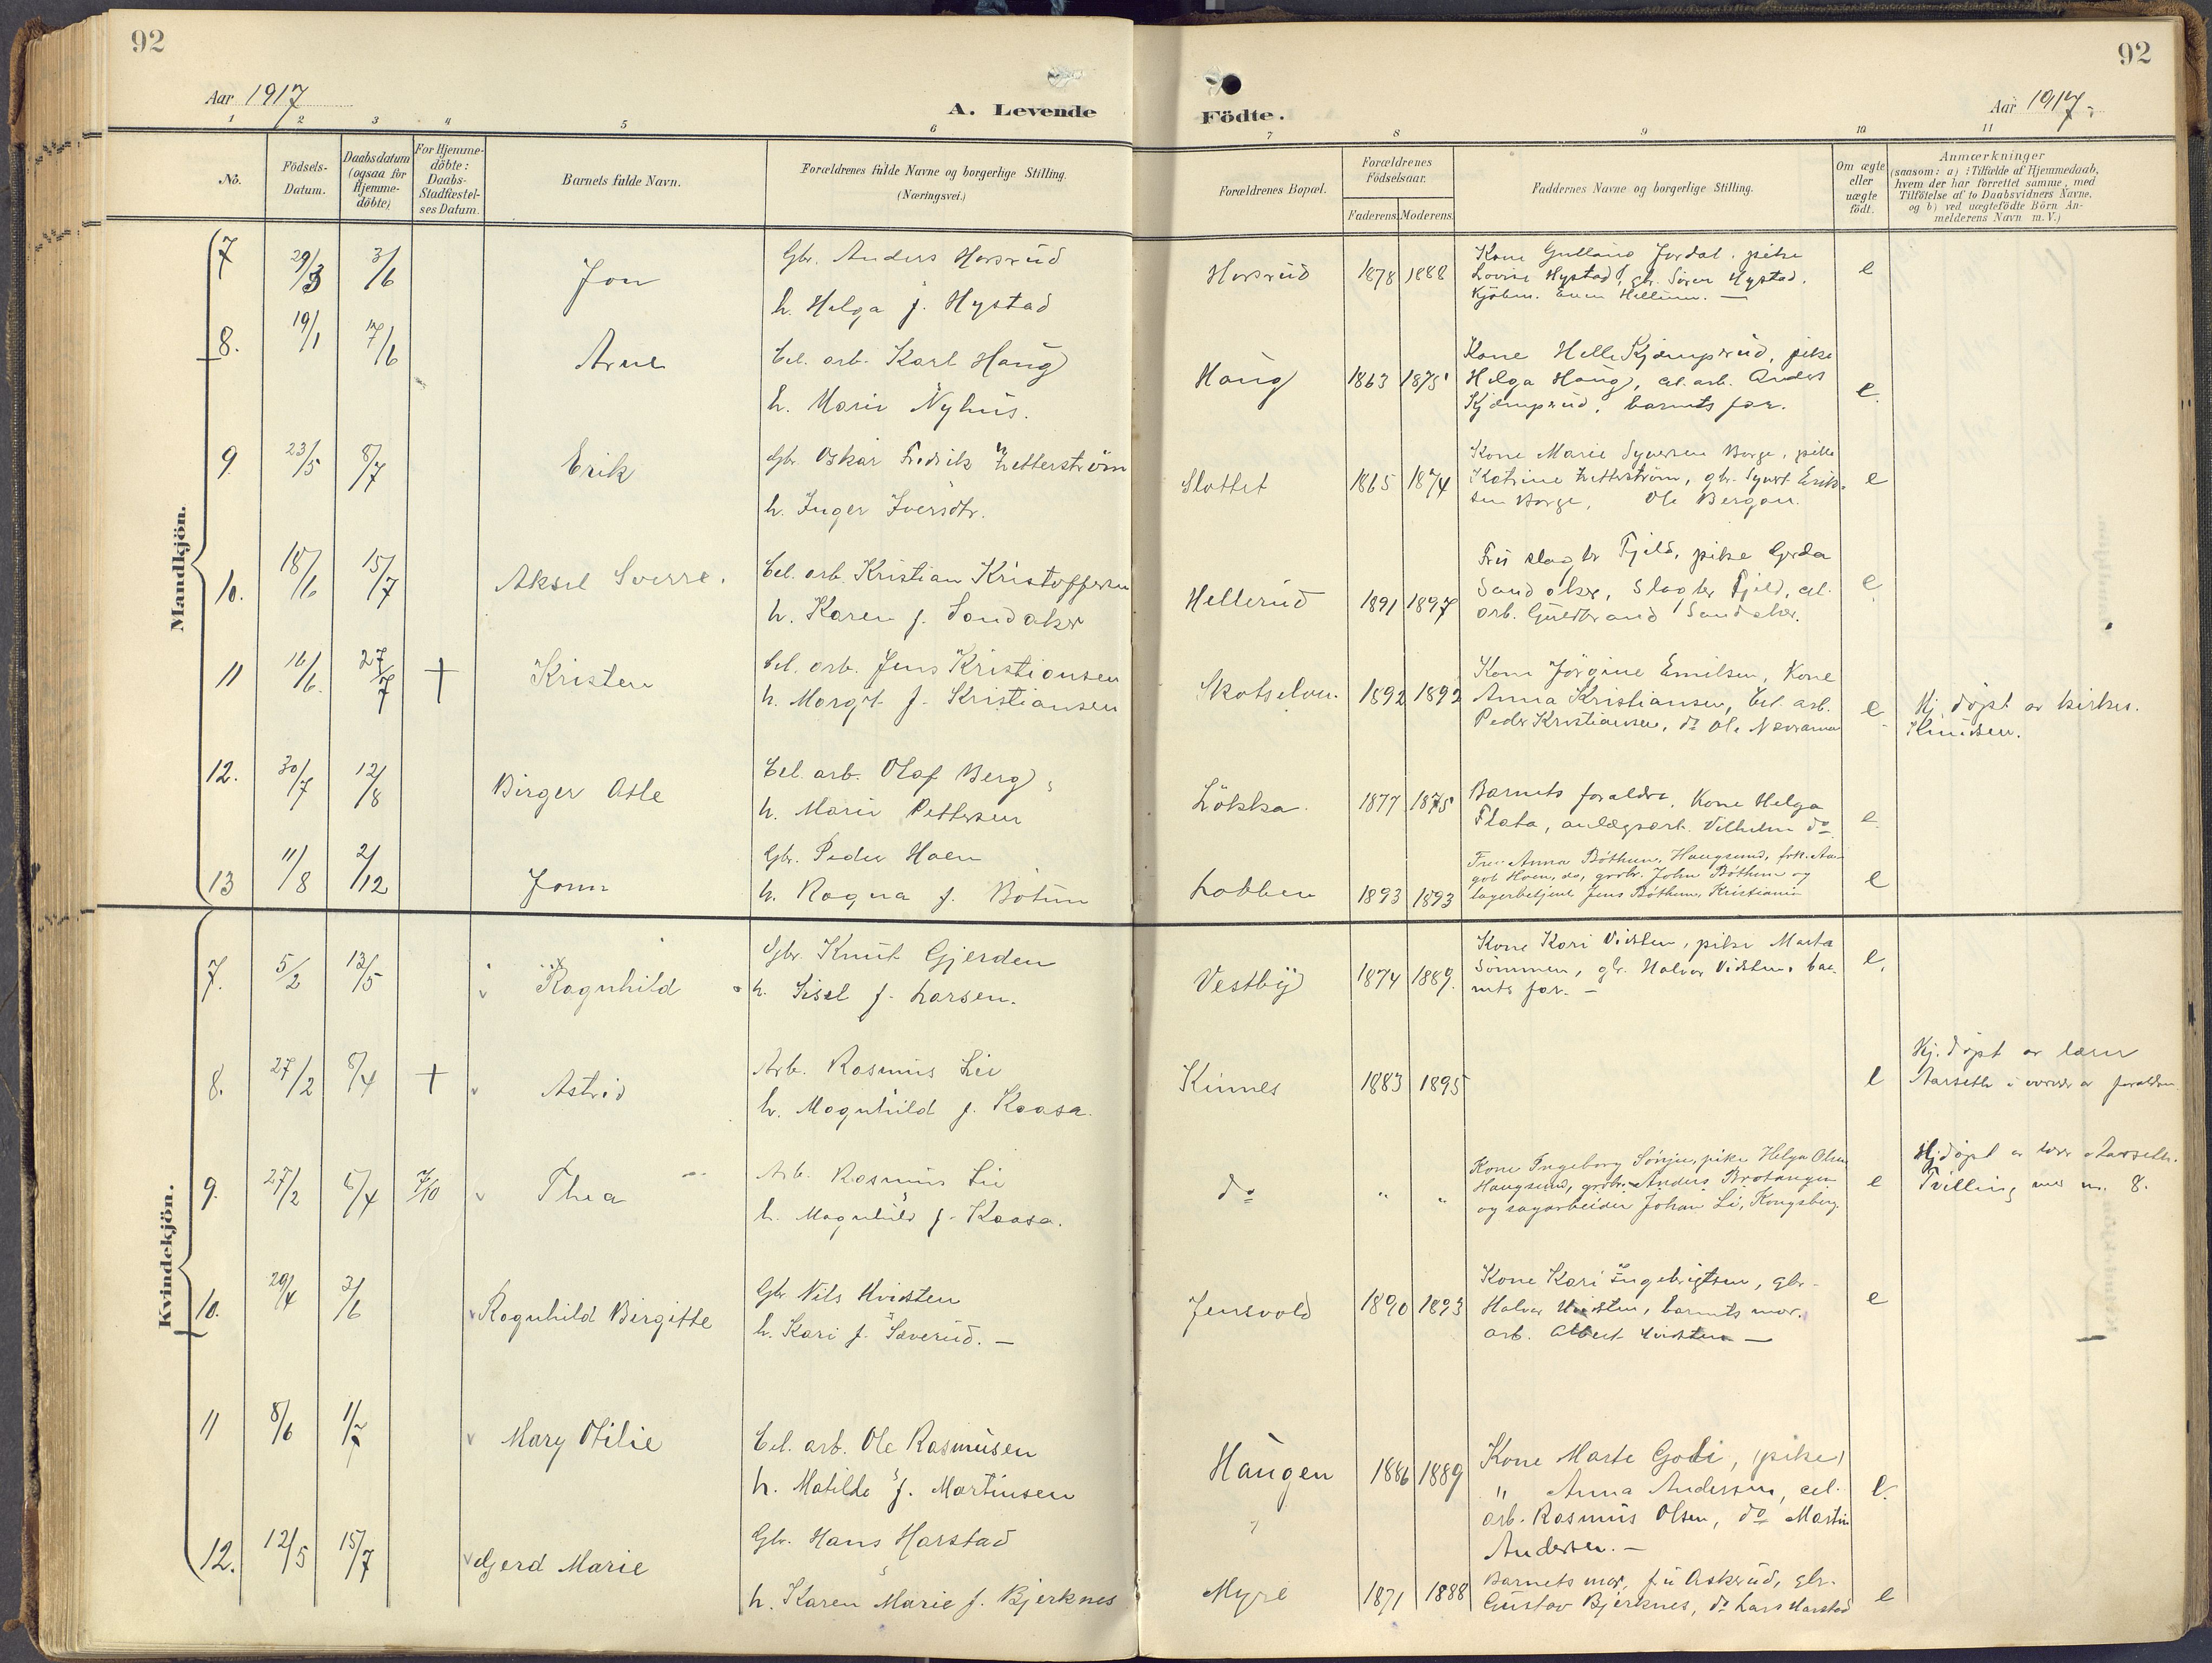 92
92
Aar 1917
A. Levende
Födte.
Aar 1917.
1 2 3 4 5 6 7 8 9 10 11
No.
Födsels-Datum.
Daabsdatum (ogsaa for Hjemme-döbte)
For Hjemme-döbte: Daabs-Stadfæstel-ses Datum.
Barnets fulde Navn.
Forældrenes fulde Navne og borgerlige Stilling.
(Næringsvei.)
Forældrenes Bopæl.
Forældrenes Födselsaar.
Faderens. Moderens.
Faddernes Navne og borgerlige Stilling.
Om ægte eller uægte födt.
Anmærkninger
(saasom: a) i Tilfælde af Hjemmedaab,
hvem der har forrettet samme, med
Tilföielse af to Daabsvidners Navne,
og b) ved uægtefödte Börn An-
melderens Navn m.V.)
Mandkjön.
7 29/3 3/6 Jon Gbr. Anders Horsrud
h. Helga f. Hystad
Horsrud 1878 1888
Kone Jordal, pike
Lovise Hystad, gbr. Sören Hystad,
Kjöbm. Even Hellum. —
e
8. 19/1 17/6 Arne Cel. arb. Karl Haug
h. Marie Nyhus.
Haug 1863 1875
Kone Helle Kjæmperud, pike
Helga Haug, cel. arb. Anders
Kjæmperud, barnets far.
e.
9. 23/5 8/7 Erik Gbr. Oskar Fredrik Zetterström
h. Inger Iversdtr.
Slottet 1865 1874
Kone Marie Syversen Borge, pike
Katrine Zetterström, gbr. Syvert Erik-
sen Borge, Ole Bergan.
e
10. 18/6 15/7 Aksel Sverre. Cel. arb. Kristian Kristoffersen
h. Karen f. Sandaker
Hellerud 1891 1897
Fru slagter Fjeld, pike Gerda
Sandaker, Slagter Fjeld, cel.
arb. Guldbrand Sandaker.
e
11 16/6. 27/7 † Kristen Cel. arb. Jens Kristiansen
h. Margit f. Kristiansen
Skotselven. 1892 1892
Kone Jörgine Emilsen, Kone
Anna Kristiansen, Cel. arb.
Peder Kristiansen, do Ole
e
Hj. döpt av kirkes.
Knudsen.
12. 30/7 12/8 Birger Asle Cel. arb. Olaf Berg,
h. Marie Pettersen
Lökka. 1877 1875
Barnets forældre, Kone Helga
Flata, anlægsarb. Vilhelm do
e.
13 11/8 2/12 Jonn Gbr. Peder Hoen
h. Ragna f. Böthun
Lobben 1893 1893
Fru Anna Böthun, Haugsund, frk. Aa-
got Hoen, do, grbr. John Böthun og
lagerbetjent Jens Böthun, Kristiania
e
Kvindekjön.
7. 5/2 13/5 Ragnhild Gbr. Knut Gjerden
h. Sissel f. Larsen.
Vestby 1874 1889.
Kone Kari Vidsten, pike Marta
Sömmen, gbr. Halvor Vidsten, bar-
nets far. —
e.
8. 27/2 8/4 † Astrid Arb. Rasmus Lie
h. Magnhild f. Kaasa.
Kinnes 1883 1895
e
Hj. döpt av lærer
Aarseth i nærvær av forældrene
9. 27/2 8/4 7/10 Thea Arb. Rasmus Lie
h. Magnhild f. Kaasa.
do " "
Kone Ingeborg Sönju, pike Helga Olsen
Haugsund, grbr. Anders Brotangen
og sagarbeider Johan Li, Kongsberg.
e
Hj. döpt av lærer Aarseth.
Tvilling med nr. 8.
10. 29/4 3/6 Ragnhild Birgitte Gbr. Nils Hvidsten
h. Kari f. Saverud. —
Jensvold 1890 1893
Kone Kari Ingebrigtsen, gbr.
Halvor Hvidsten, barnets mor.
arb. Albert Hvidsten —
e
11 8/6 1/7 Mary Otilie Cel. arb. Ole Rasmusen
h. Matilde f. Martinsen
Haugen 1886 1889
Kone Marte Goli, (pike)
" Anna Andersen, cel.
arb. Rasmus Olsen, do Martin
Andersen. —
e.
12. 12/5 15/7 Gjerd Marie Gbr. Hans Harstad
h. Karen Marie f. Bjerknes
Myre 1871 1888
Barnets mor, fru Askerud, gbr.
Gustav Bjerknes, do Lars Harstad
e